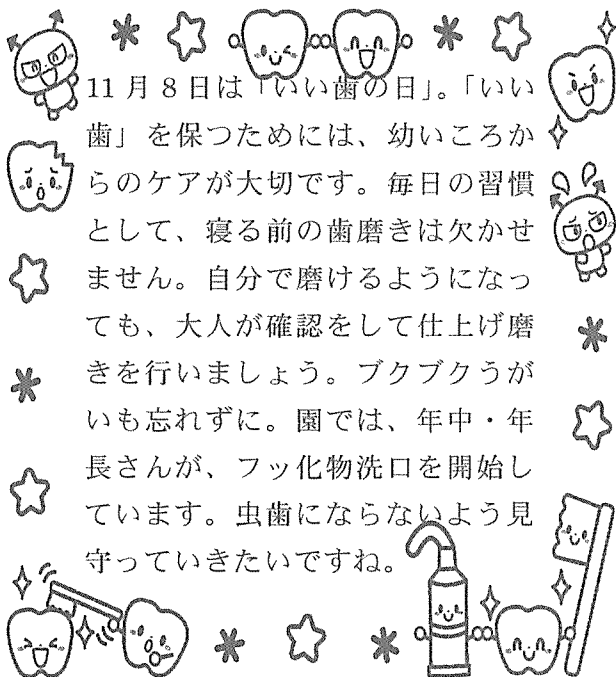 11月8日は「いい歯の日」。「いい
歯」を保つためには、幼いころか
らのケアが大切です。毎日の習慣
として、寝る前の歯磨きは欠かせ
ません。自分で磨けるようになっ
ても、大人が確認をして仕上げ磨
きを行いましょう。ブクブクうが
いも忘れずに。園では、年中・年
長さんが、フッ化物洗口を開始し
ています。虫歯にならないよう見
守っていきたいですね。